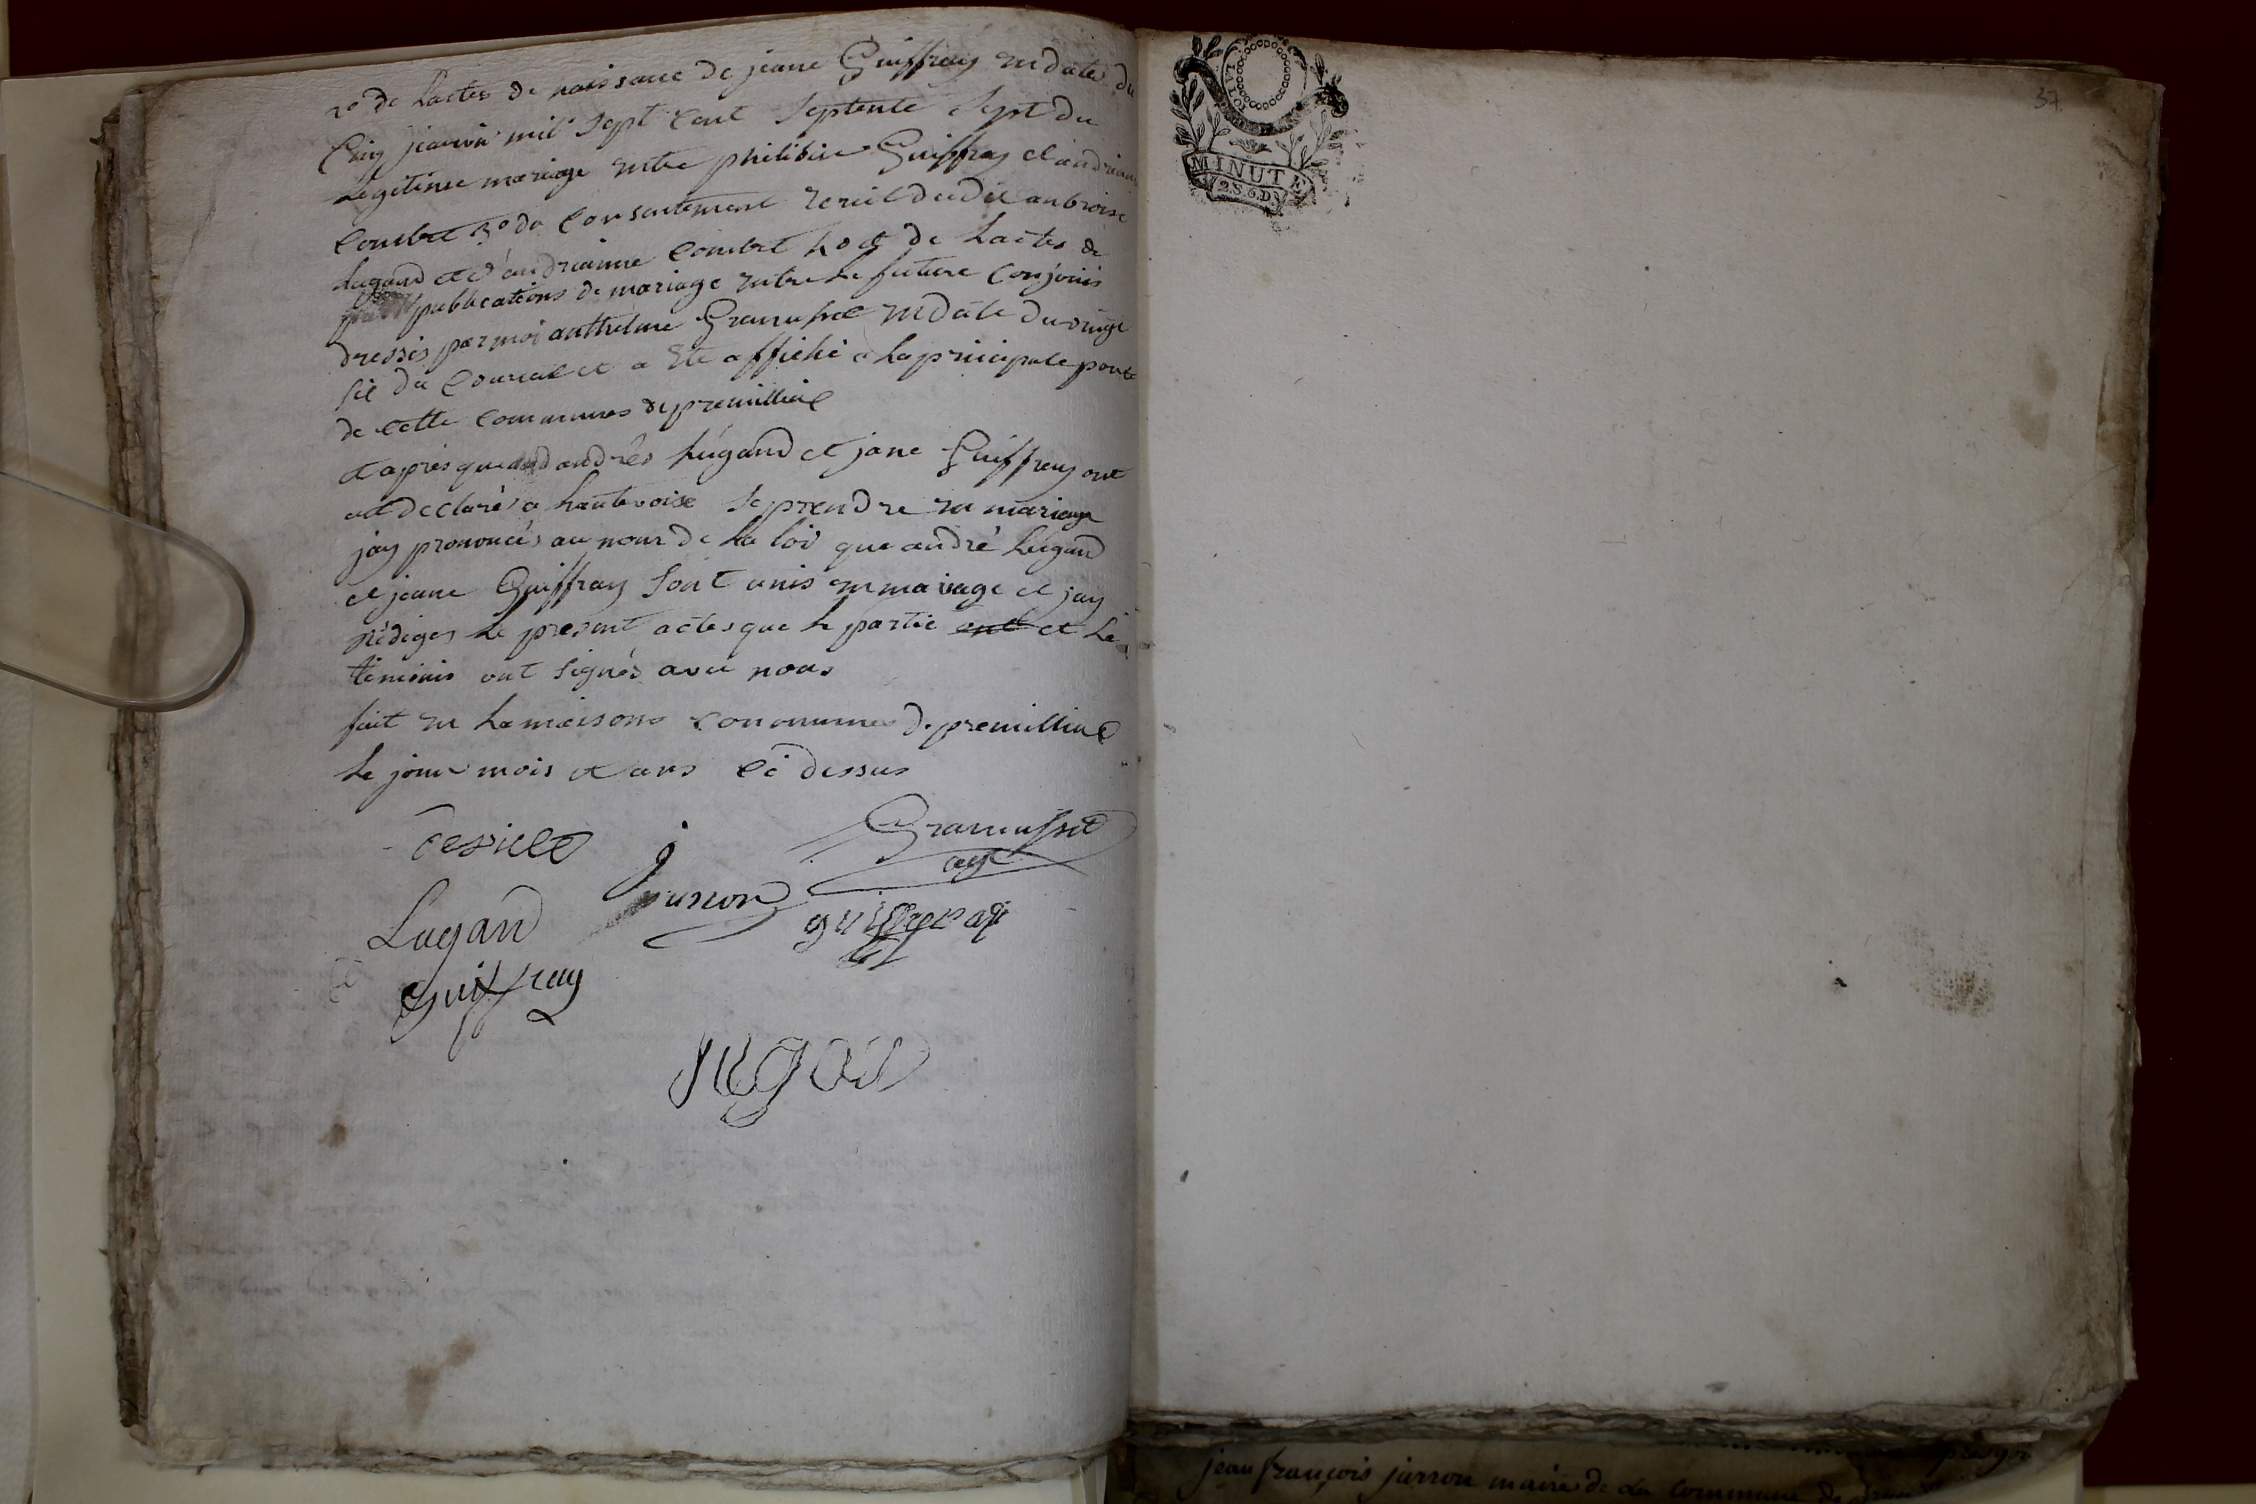 2o de Lactes de naissance de jeane Guiffray en date du
Cinq janvié mil sept cent septente sept du
Legetime mariage entre philibaire Guiffray et andrianne
Combet 3o du Consentement recüe du dit anbroise
Lugand et d'andrianne Combet 4o de Lactes de
publications de mariage entre Le future Conjoins
dressés par moi anthelme Gramusset en date du vingt
six du Courant et a été affiché a La principale porte
de cette Communes de premillieu
et apres que andrés Lugand et jane Guiffray ont
déclaré a haute voise se prendre en mariage
jay prononcés au nom de La Loi que andré Lugand
et jeane Guiffray sont unis en mariage et jay
rédiger Le present actes que Le partie ont et Le
témoins ont signés avec nous
fait en La maisons Commune de premillieu
Le jour mois et ans Ci dessus
Gramusset
agt
Lugand
jurron
Guiffray
MINUTE
2.S.6.D.
37
jean françois jurron maire de La Commune de